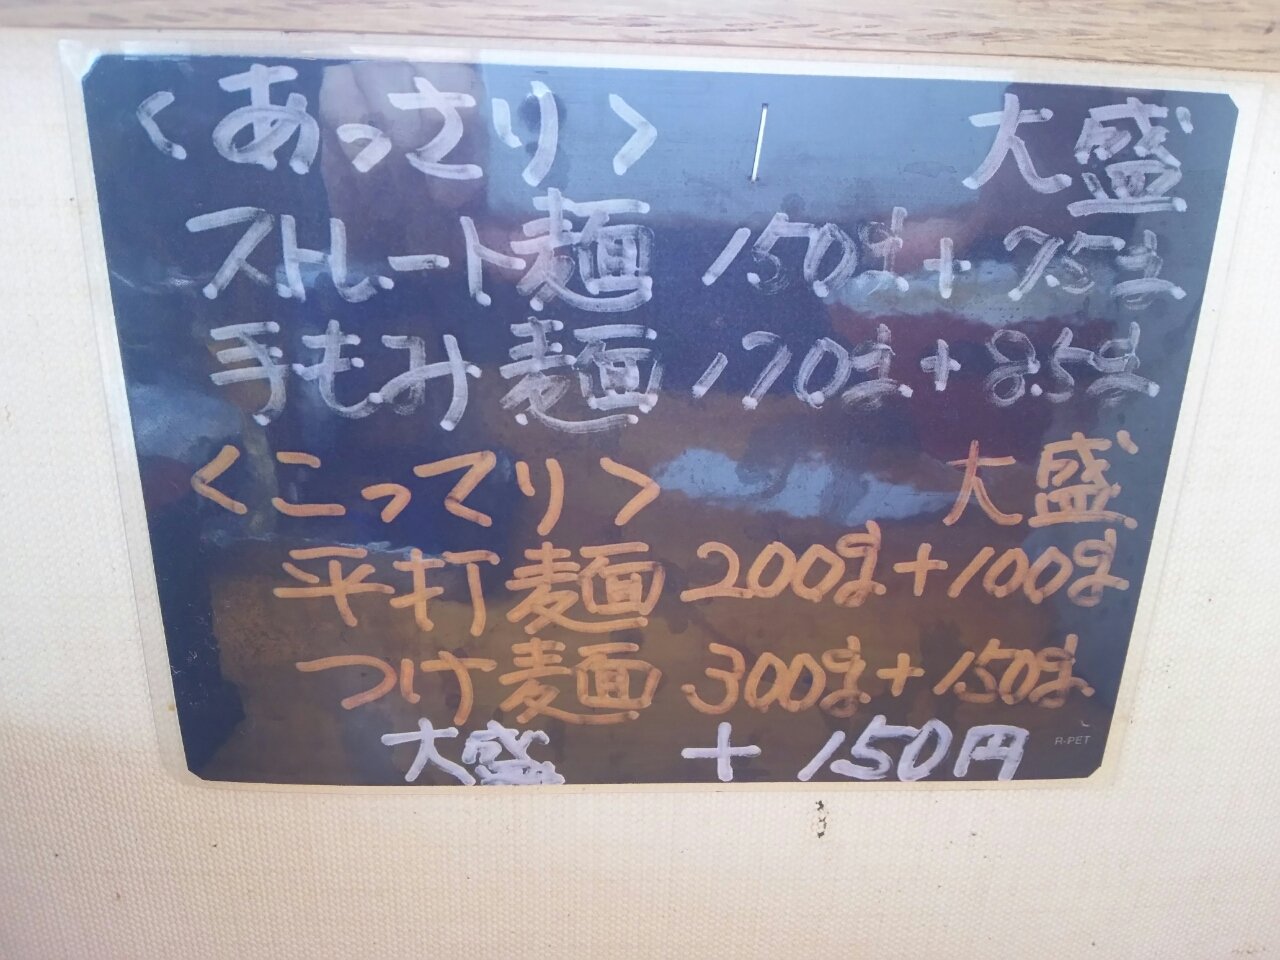 〈あっさり〉 大盛
ストレート麺 150g+75g
手もみ麺 170g+85g
〈こってり〉 大盛
平打麺 200g+100g
つけ麺 300g+150g
大盛 +150円
R-PET